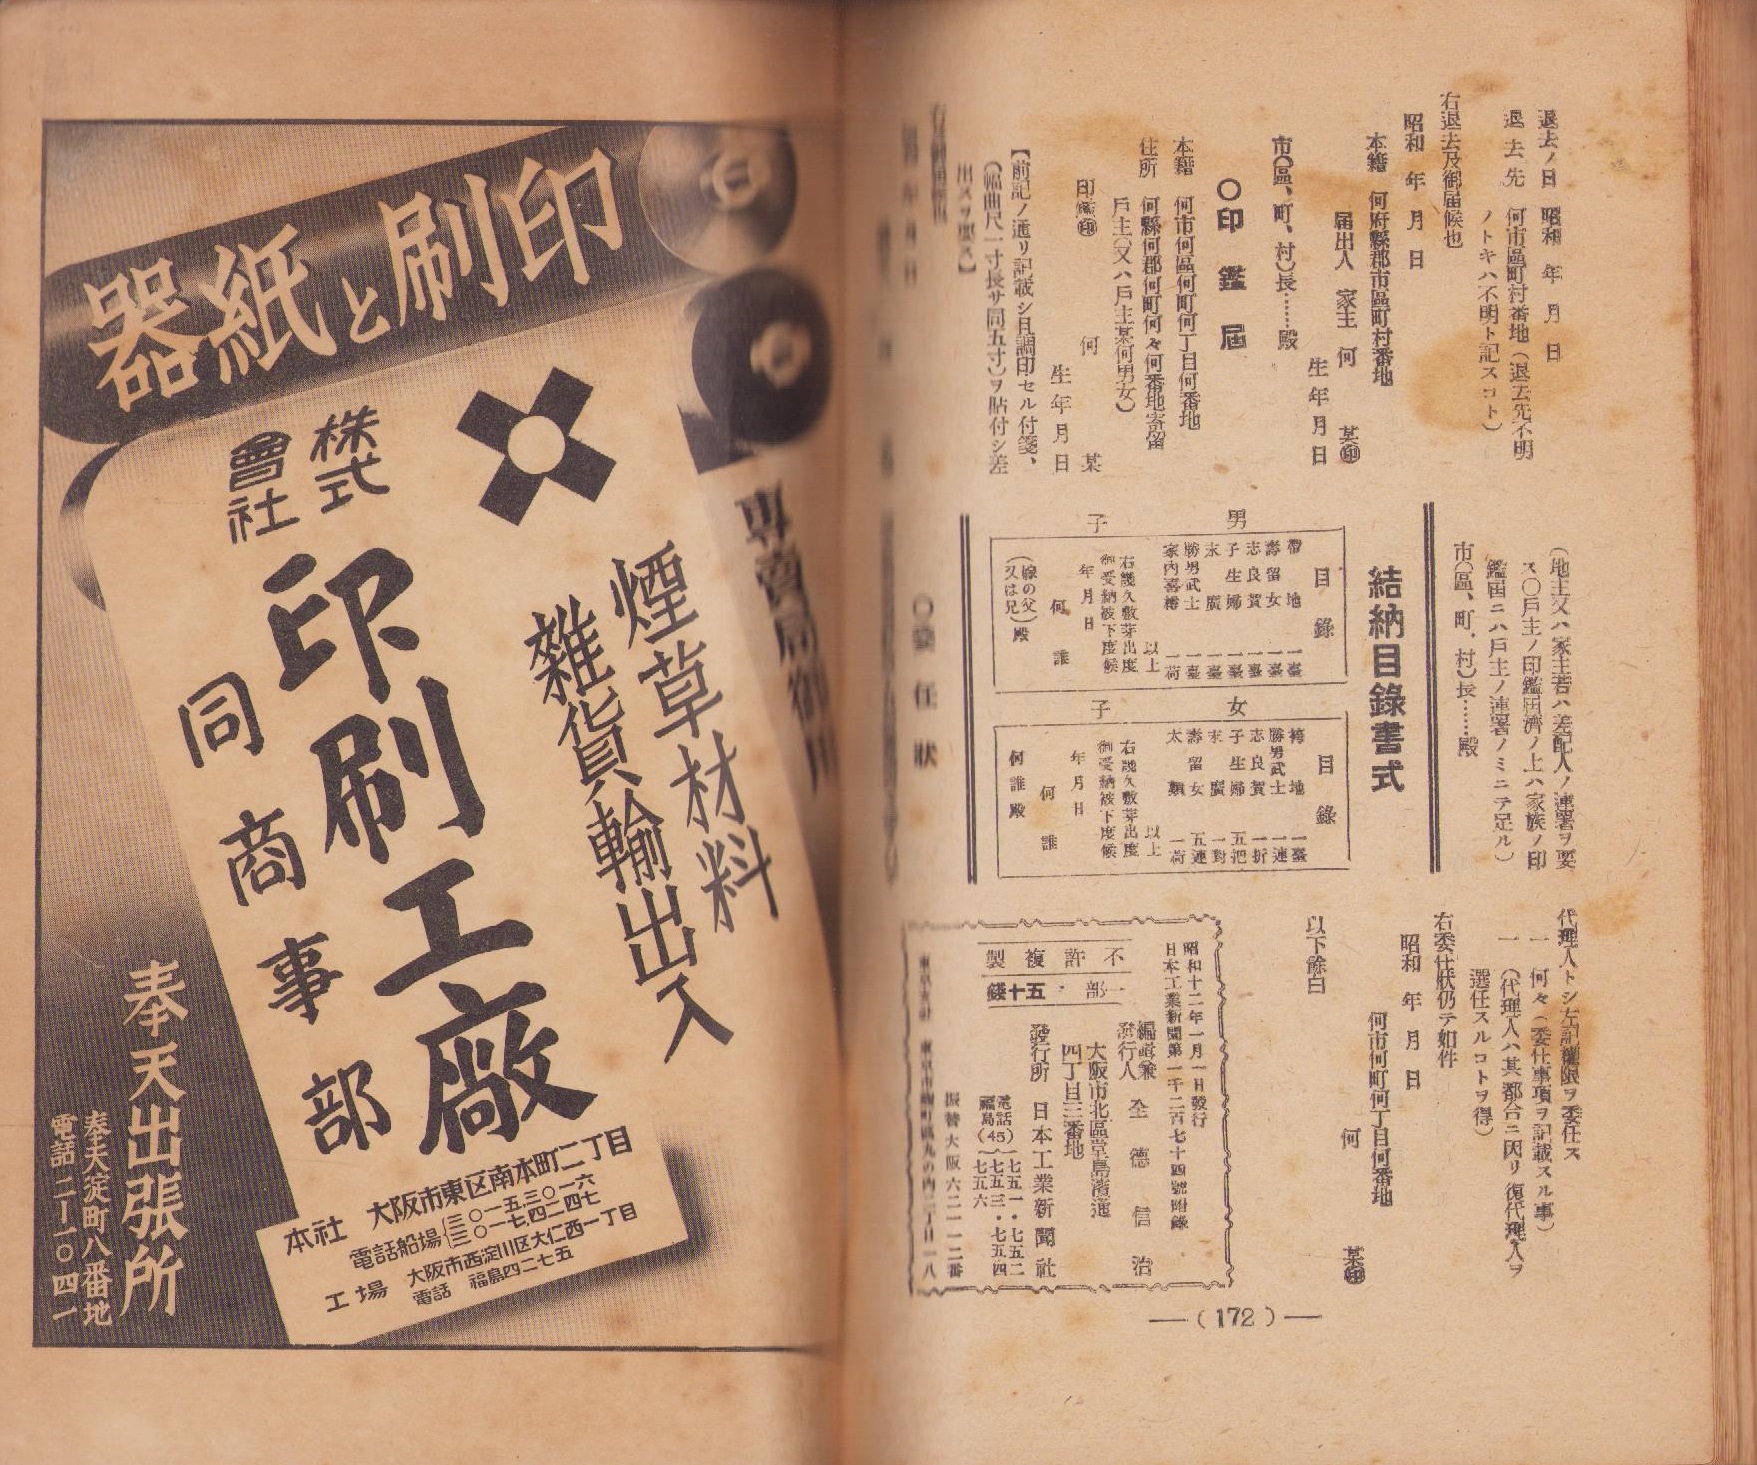 退去ノ日 昭和 年 月 日
退去先 何市區町村番地(退去先不明
ノトキハ不明ト記スコト)
右退去及御届候也
昭和 年 月 日
本籍 何府縣郡市區町村番地
届出人 家主 何 某㊞
生年月日
市(區、町、村)長……殿
〇印鑑届
本籍 何市何區何町何丁目何番地
住所 何縣何郡何町何々何番地寄留
戶主(又ハ戶主某何男女)
印鑑㊞ 何 某
生年月日
【前記ノ通リ記載シ且調印セル付箋、
(幅曲尺一寸長サ同五寸)ヲ貼付シ差
出スヲ要ス】
(地主又ハ家主若ハ差配人ノ連署ヲ要
ス〇戶主ノ印鑑届濟ノ上ハ家族ノ印
鑑届ニハ戶主ノ連署ノミニテ足ル)
市(區、町、村)長……殿
結納目錄書式
男子
目錄
帶地 一臺
壽留女 一臺
志良賀 一臺
子生婦 一臺
末廣 一臺
勝男武士 一臺
家內喜樽 一荷
以上
右幾久敷芽出度
御受納被下度候
年月日
何 誰
(嫁の父
又は兄)殿
女子
目錄
袴地 一臺
勝男武士 一連
志良賀 一折
子生婦 五把
末廣 一對
壽留女 五連
太 一荷
以上
右幾久敷芽出度
御受納被下度候
年月日
何 誰
何誰殿
〇委任狀
代理人トシ左記權限ヲ委任ス
一 何々(委任事項ヲ記載スル事)
一 (代理人ハ其都合ニ因リ復代理人ヲ
選任スルコトヲ得)
右委任狀仍テ如件
昭和 年 月 日
何市何町何丁目何番地
何 某㊞
以下餘白
昭和十二年一月一日發行
日本工業新聞第一千二百七十四號附錄
不許複製
一部・五十錢
編輯兼
發行人 全德信治
大阪市北區堂島濱通
四丁目三番地
發行所 日本工業新聞社
電話
福島(45)
七五一・七五二
七五三・七五四
七五六
振替大阪六二一一二番
—(172)—
印刷と紙器
專賣局御用
煙草材料
雜貨輸出入
株式
會社
印刷工廠
同商事部
本社 大阪市東区南本町二丁目
電話船場
三〇一五三〇一六
三〇一七四二四七
工場 大阪市西淀川区大仁西一丁目
電話 福島四二七五
奉天出張所
奉天淀町八番地
電話 二-一〇四一